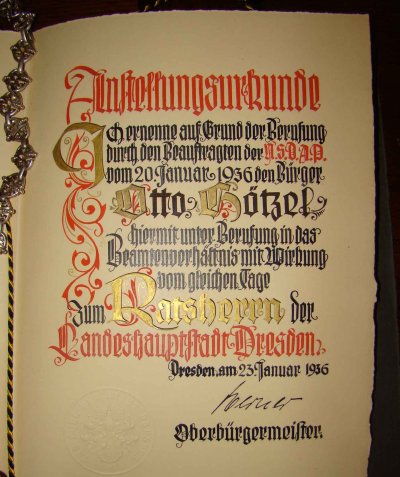 Anstellungsurkunde
Ich ernenne auf Grund der Berufung
durch den Beauftragten der N.S.D.A.P.
vom 20. Januar 1936 den Bürger
Otto Götzel
hiermit unter Berufung in das
Beamtenverhältnis mit Wirkung
vom gleichen Tage
zum Ratsherrn der
Landeshauptstadt Dresden.
Dresden, am 23. Januar 1936
Oberbürgermeister.